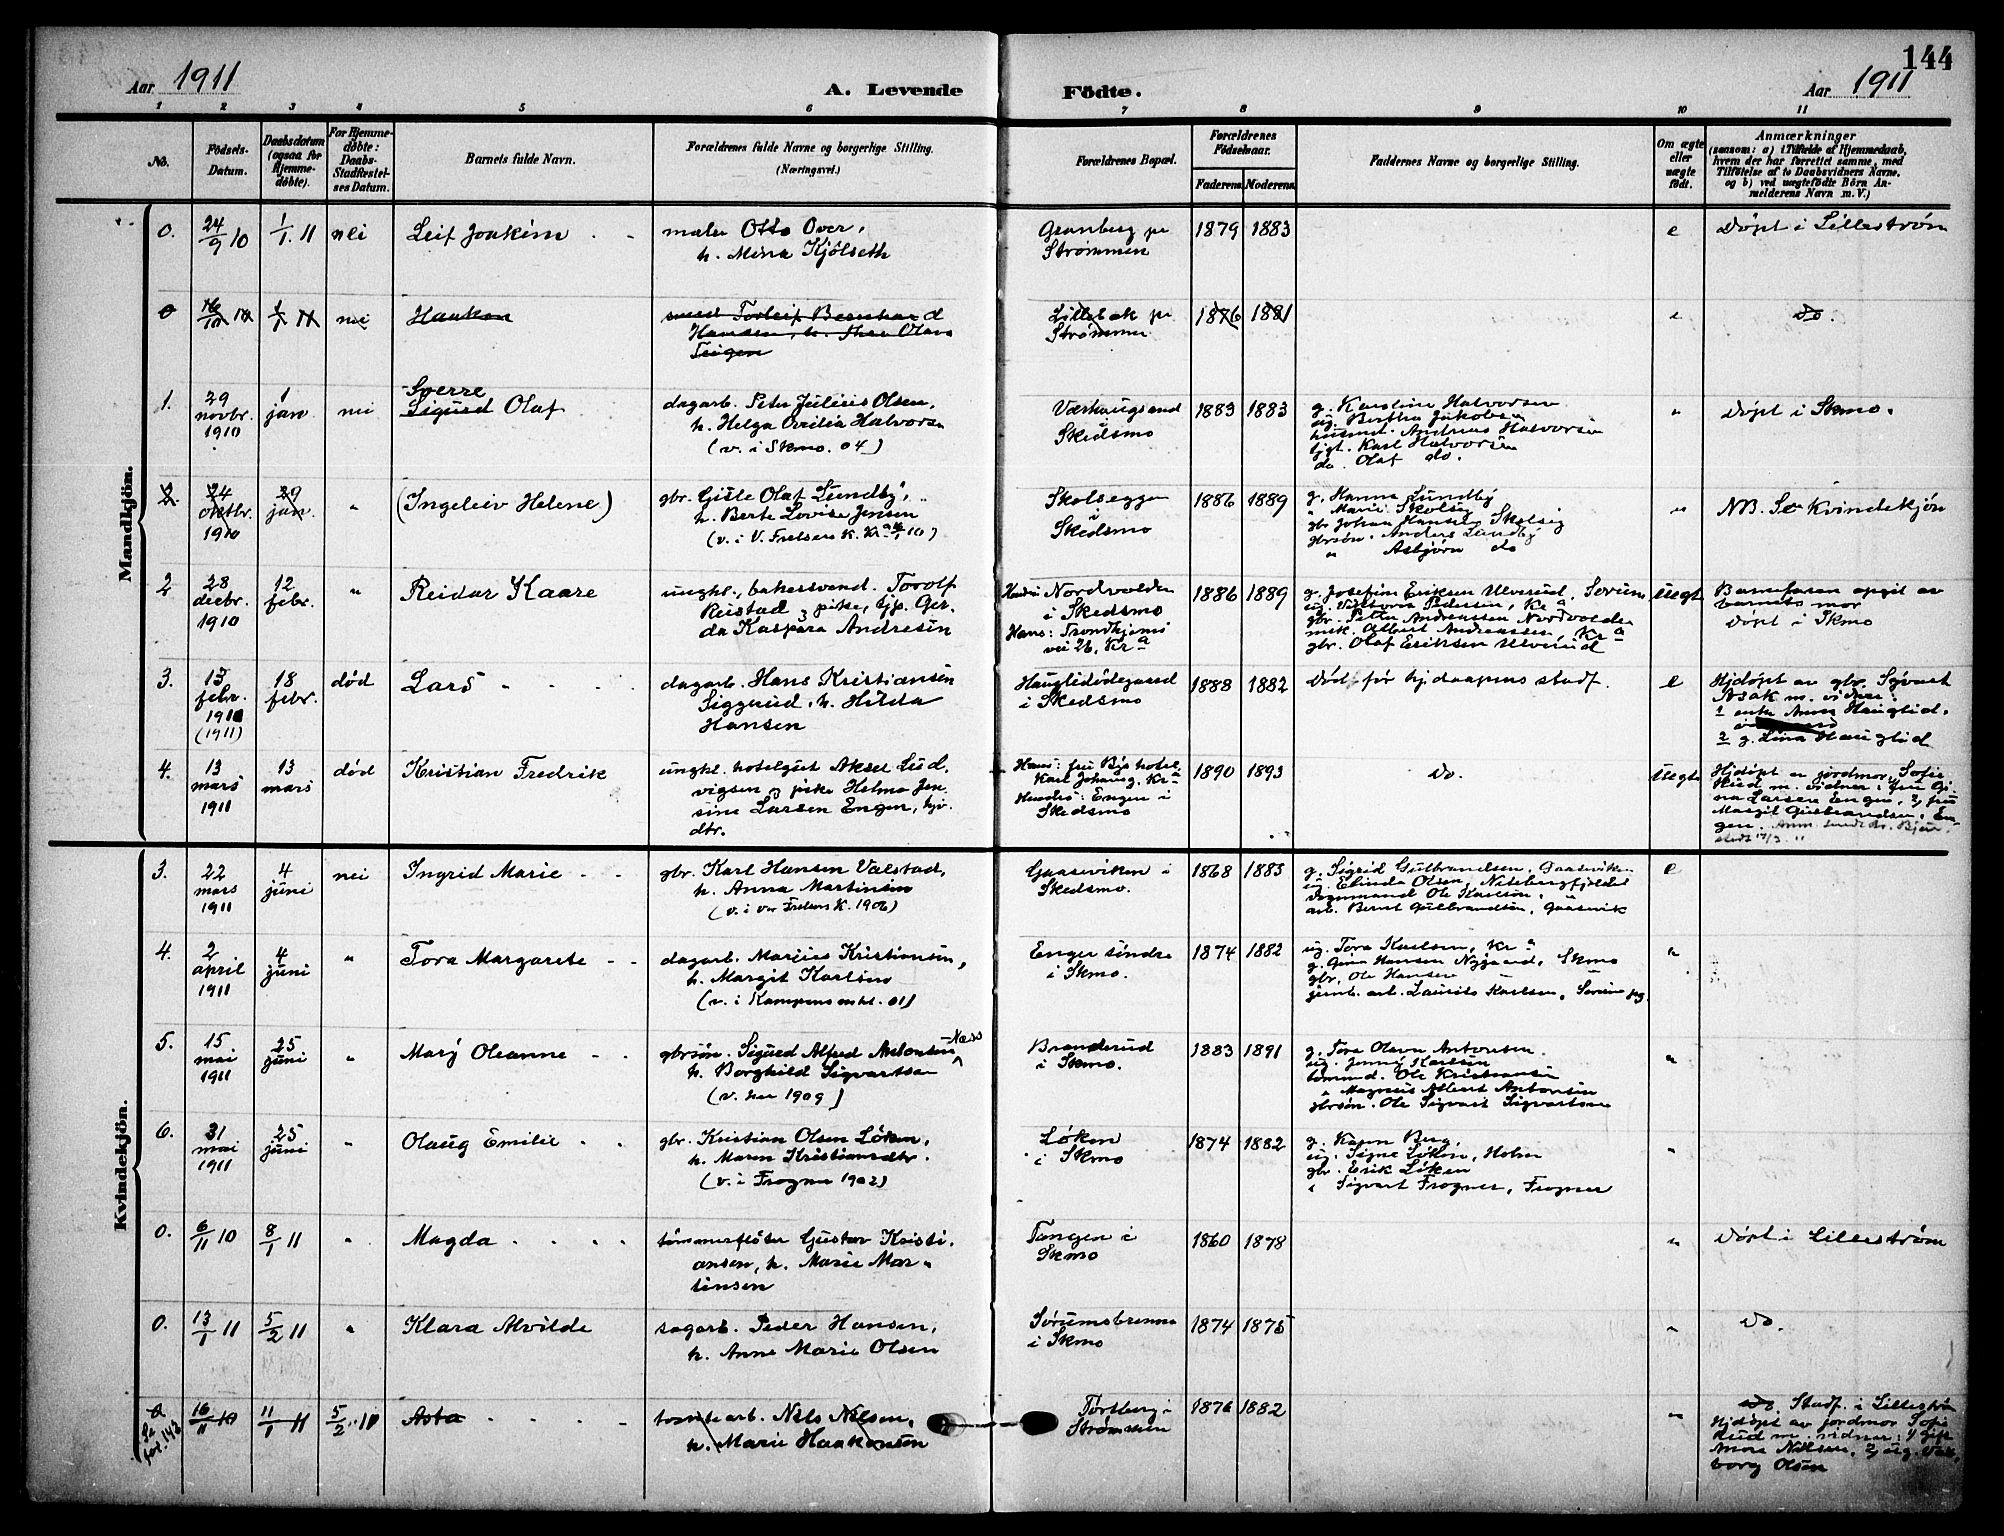 144
Aar 1911
A. Levende Födte.
Aar 1911
1 2 3 4 5 6 7 8 9 10 11
No.
Födsels-Datum.
Daabsdatum (ogsaa for Hjemme-döbte).
For Hjemme-döbte: Daabs-Stadfæstel-ses Datum.
Barnets fulde Navn.
Forældrenes fulde Navne og borgerlige Stilling.
(Næringsvei.)
Forældrenes Bopæl.
Forældrenes Födselsaar.
Faderens. Moderens.
Faddernes Navne og borgerlige Stilling.
Om ægte eller uægte födt.
Anmærkninger
(saasom: a) i Tilfælde af Hjemmedaab,
hvem der har forrettet samme, med
Tilföielse af to Daabsvidners Navne,
og b) ved uægtefödte Börn An-
melderens Navn m. V.)
Mandkjön.
0. 24/9 10 1/1. 11 nei Leif Joakim
maler Otto Over,
h. Mina Kjölseth
Granberg pr
Strømmen
1879 1883 e Døpt i Lillestrøm
0 16/10 10 1/1 11 nei Haakon
smed Torleif Bernhard
Hansen, h. Thea Olava
Teigen
Lillebæk pr
Strømmen
1876 1881 " do.
1. 29 novbr. 1910 1 jan nei Sverre
Sigurd Olaf
dagarb. Peter Julius Olsen,
h. Helga Ovilia Halvorsen
(v. i Skmo. 04)
Værhaugsend
Skedsmo
1883 1883
g. Karoline Halvorsen
ug. Bertha Jakobsen
husmd. Andreas Halvorsen
ljgt. Karl Halvorsen
do. Olaf do.
" Døpt i Skmo.
2. 24 oktbr. 1910 29 jan. " (Ingeleiv Helene)
gbr. Gisle Olaf Lundby,
h. Berte Lovise Jensen
(v. i V. Frelsers K. Kra 10)
Skolseggen
i
Skedsmo
1886 1889
g. Hanna Lundby
" Marie Skolseg
gbr Johan Hansen Skolseg
gbrsøn. Anders Lundby
" Asbjørn do
" NB. Se Kvindekjøn
2 28 decbr. 1910 12 febr. " Reidar Kaare
ungkl., bakersvend. Torolf
Reistad, pike, tjp. Ger-
da Kaspara Andresen
Hendes: Nordvolden
i Skedsmo
Hans: Trondhjems
vei 26, Kra
1886 1889
g. Josefine Eriksen Ulverud, Sørum
ug. Viktoria Pedersen, Kra
gbr. Petter Andreassen Nordvolden
msk. Albert Andreassen, Kra
gbr. Olaf Eriksen Ulverud
Uegte Barnefaren opgit av
barnets mor
Døpt i Skmo
3. 13 febr. 1911 (1911) 18 febr. død Lars
dagarb. Hans Kristiansen
Siggerud, h. Hilda
Hansen
Hauglidødegaard
i Skedsmo
1888 1882 Død før hjdaapens stadf. e
Hjdøpt av gbr. Sigvart
Asak m. vidner:
1 enke Anna Hauglid.
2 g. Lina Hauglid
4. 13 mars 1911 13 mars død Kristian Fredrik
ungkl. hotelgut Aksel Lud-
vigsen, pike Helma Jen-
sine Larsen Engen, hjv.
dtr.
Hans: fru Bye hotel,
Karl Johansg. Kra
Hendes: Engen i
Skedsmo
1890 1893 do. Uegte
Hjdøpt av jordmor Sofie
Rud m. vidner: 1/ fru Gi-
na Larsen Engen, 2/ fru
Margit Gulbrandsen, En-
gen.
Kvindekjön.
3. 22 mars 1911 4 juni nei Ingrid Marie
gbr. Karl Hansen Valstad,
h. Anna Martinsen
(v. i Vor Frelsers K. 1906)
Gaasviken i
Skedsmo.
1868 1883
g. Sigrid Gulbrandsen, Gaasviken
ug. Elinda Olsen, Nitebergfjeldet
Ole Karlsen,
arb. Bernt Gulbrandsen, Gaasvik
e
4. 2 april 1911 4 juni " Tora Margarete
dagarb. Marius Kristiansen,
h. Margit Karlsen
(v. i Kampens mkl. 01)
Enger søndre
i Skmo.
1874 1882
ug. Tora Karlsen, Kra
g. Gina Hansen Nygaard, Skmo
gbr. Ole Hansen "
jernb. arb. Laurits Karlsen, Sørum
"
5. 15 mai 1911 25 juni " Mary Oleanne
gbrsøn. Sigurd Alfred Antonsen -Næss
h. Borghild Sigvartsen
(v. her 1909)
Branderud
i Skmo.
1883 1891
g. Tora Olava Antonsen.
ug. Jenny Karlsen
tømmd. Ole Kristiansen
" Magnus Albert Antonsen
gbrsøn. Ole Sigvart Sigvartsen
"
6. 31 mai 1911 25 juni " Olaug Emilie
gbr. Kristian Olsen Løken,
h. Maren Kristiansdtr.
(v. i Frogner 1902)
Løken
i Skmo
1874 1882
g. Karen Berg,
ug. Signe Løken, Holm
gbr. Erik Løken
" Sigvart Frogner, Frogner
"
0. 6/11 10 8/1 11 " Magda
tømmerfløter Gustav Kristi-
ansen, h. Marie Mar-
tinsen
Tangen i
Skmo
1860 1878 " Døpt i Lillestrøm
0. 13/1 11 5/2 11 " Klara Alvilde
sagarb. Peder Hansen,
h. Anne Marie Olsen
Sørumsbrenna
i Skmo
1874 1875 " do.
0 Se fol. 143 16/11 10 11/1 11 5/2 11 Asta
tomtearb. Nils Nilsen,
h. Marie Haakonsen
Tørtberg i
Strømmen
1876 1882 "
do. Stadf. i Lillestrøm
Hjdøpt av jordmor Sofie
Rud m. vidner: 1/ gift
Anna Nilsen, 2/ ug. Val-
borg Olsen